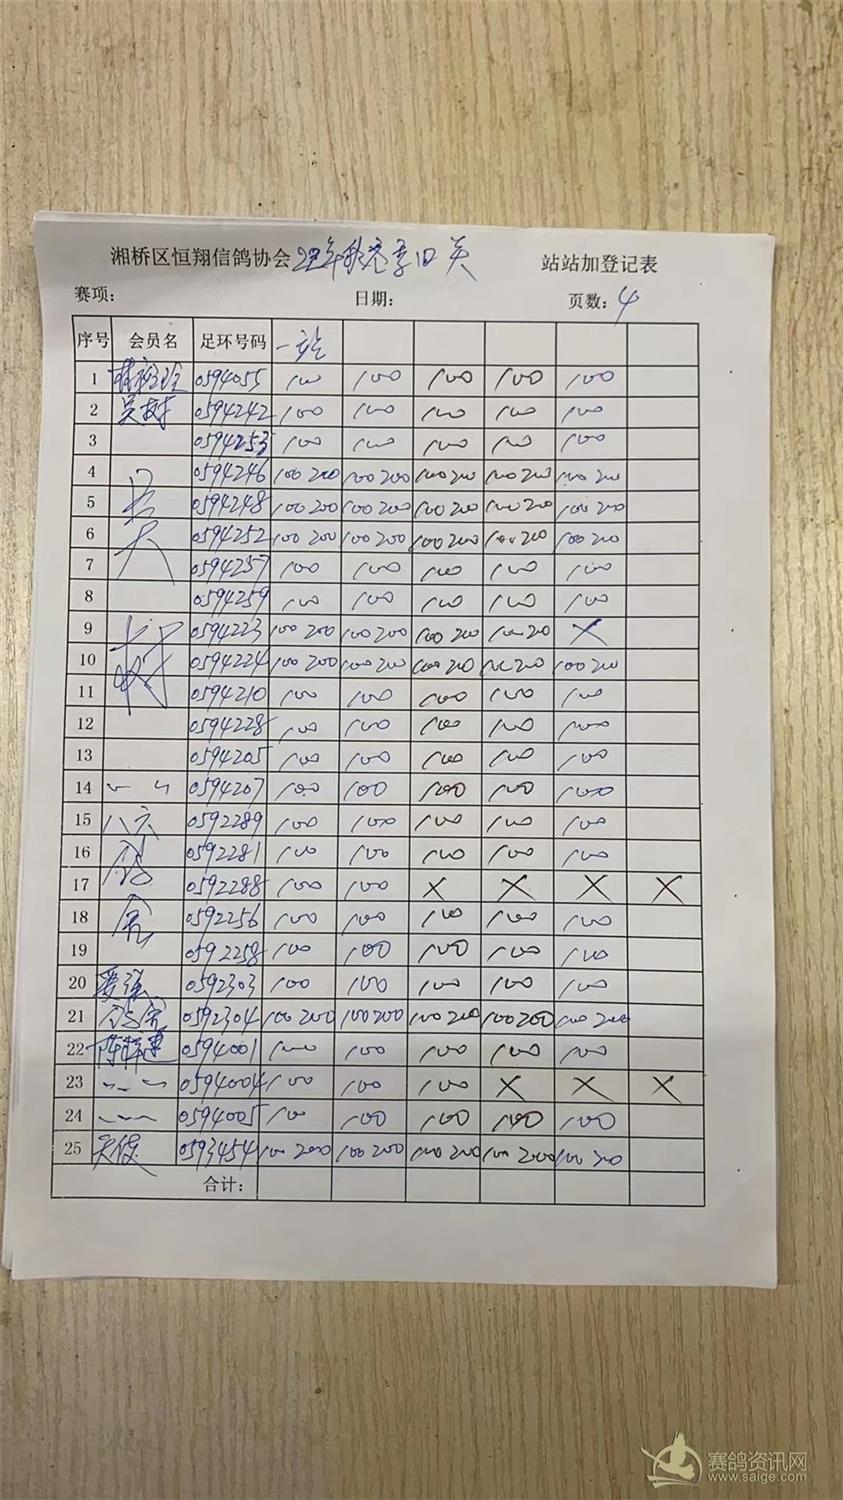 湘桥区恒翔信鸽协会 站站加登记表
赛项： 日期： 页数：4
序号 会员名 足环号码 一站
1 0594055 100 100 100 100 100
2 吴树 0594242 100 100 100 100 100
3 0594253 100 100 100 100 100
4 0594246 100 200 100 200 100 200 100 200 100 200
5 0594248 100 200 100 200 100 200 100 200 100 200
6 0594252 100 200 100 200 100 200 100 200 100 200
7 0594257 100 100 100 100 100
8 0594259 100 100 100 100 100
9 0594223 100 200 100 200 100 200 100 200 X
10 0594224 100 200 100 200 100 200 100 200 100 200
11 0594210 100 100 100 100 100
12 0594228 100 100 100 100 100
13 0594205 100 100 100 100 100
14 0594207 100 100 100 100 100
15 八六 0592289 100 100 100 100 100
16 鸽 0592281 100 100 100 100 100
17 0592288 100 100 X X X X
18 舍 0592256 100 100 100 100 100
19 0592258 100 100 100 100 100
20 0592303 100 100 100 100 100
21 鸽舍 0592304 100 200 100 200 100 200 100 200 100 200
22 0594001 100 100 100 100 100
23 0594004 100 100 100 X X X
24 0594005 100 100 100 100 100
25 天使 0593454 100 200 100 200 100 200 100 200 100 200
合计：
赛鸽资讯网
www.saige.com